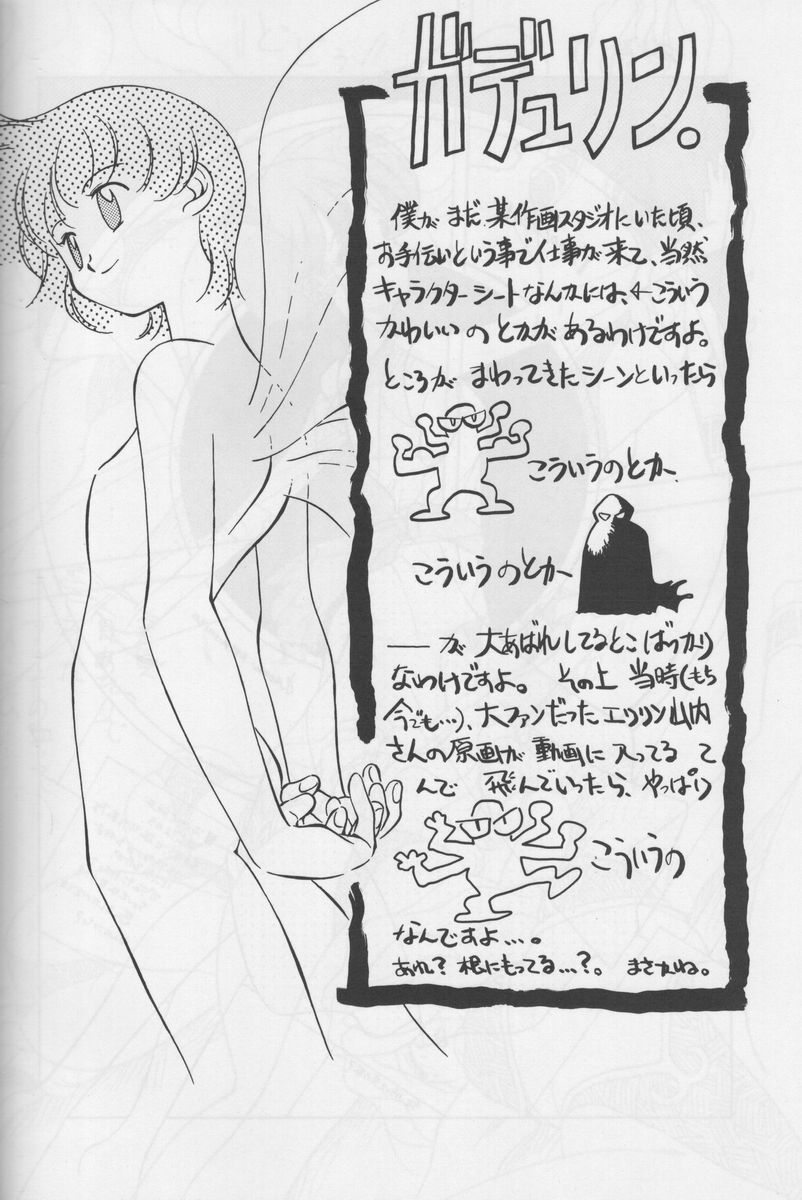 ガデュリン。
僕がまだ某作画スタジオにいた頃、
お手伝いという事で仕事が来て、当然
キャラクターシートなんかには、←こういう
かわいいのとかがあるわけですよ。
ところがまわってきたシーンといったら
こういうのとか、
こういうのとか
――が大あばれしてるとこばっかり
なわけですよ。その上当時(もち
今でも…)、大ファンだったエリリン山内
さんの原画が動画に入ってるて
んで飛んでいったら、やっぱり
こういうの
なんですよ…。
あれ?根にもってる…?。まさかね。